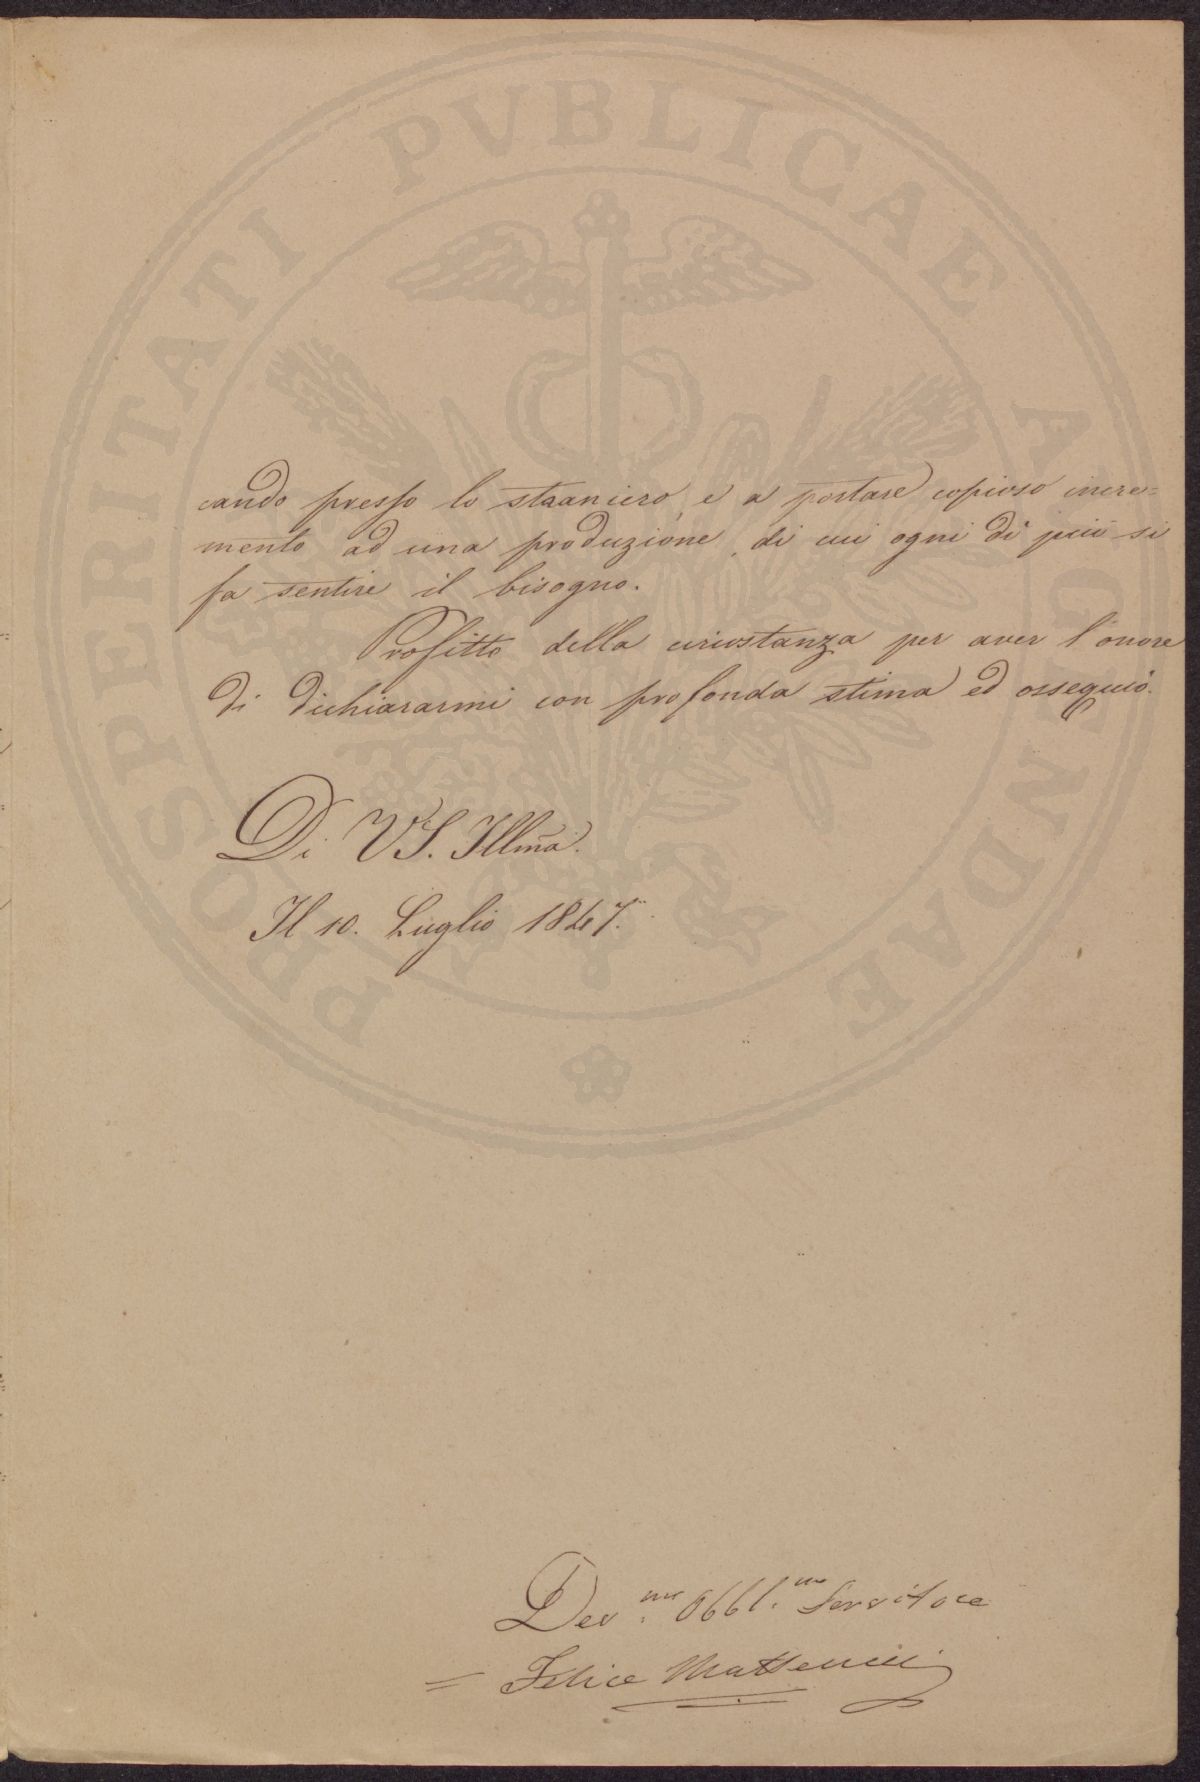 PROSPERITATI PVBLICAE AVGENDAE
cando presso lo straniero, e a portare copioso incre=
mento ad una produzione, di cui ogni dì più si
fa sentire il bisogno.
Profitto della circostanza per aver l'onore
di dichiararmi con profonda stima ed ossequio.
Di VS. Illma.
Il 10. Luglio 1847.
Dev.mo Obbl.mo Servitore
= Felice Matteucci